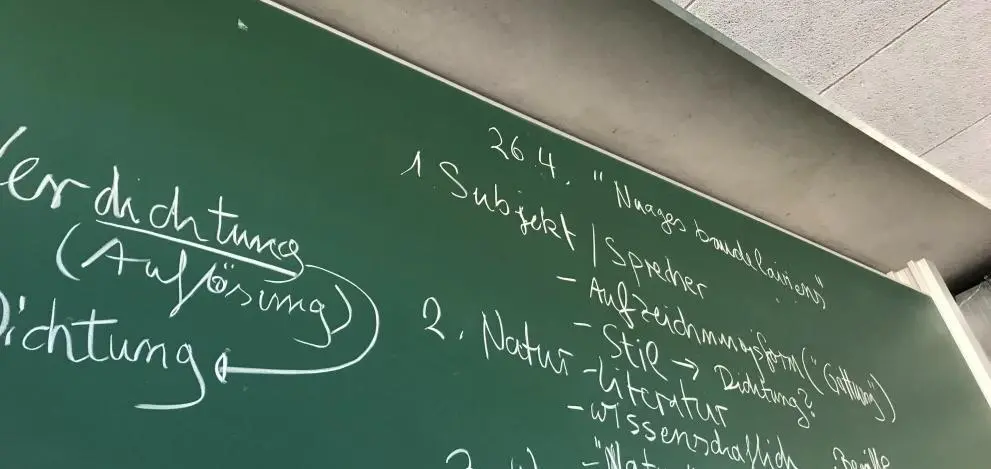 Verdichtung
(Auflösung)
Dichtung
26.4. "Nuages baudelairiens"
1. Subjekt / Sprecher
- Aufzeichnungsform ("Gattung")
- Stil → Dichtung?
2. Natur - Literatur
- wissenschaftlich